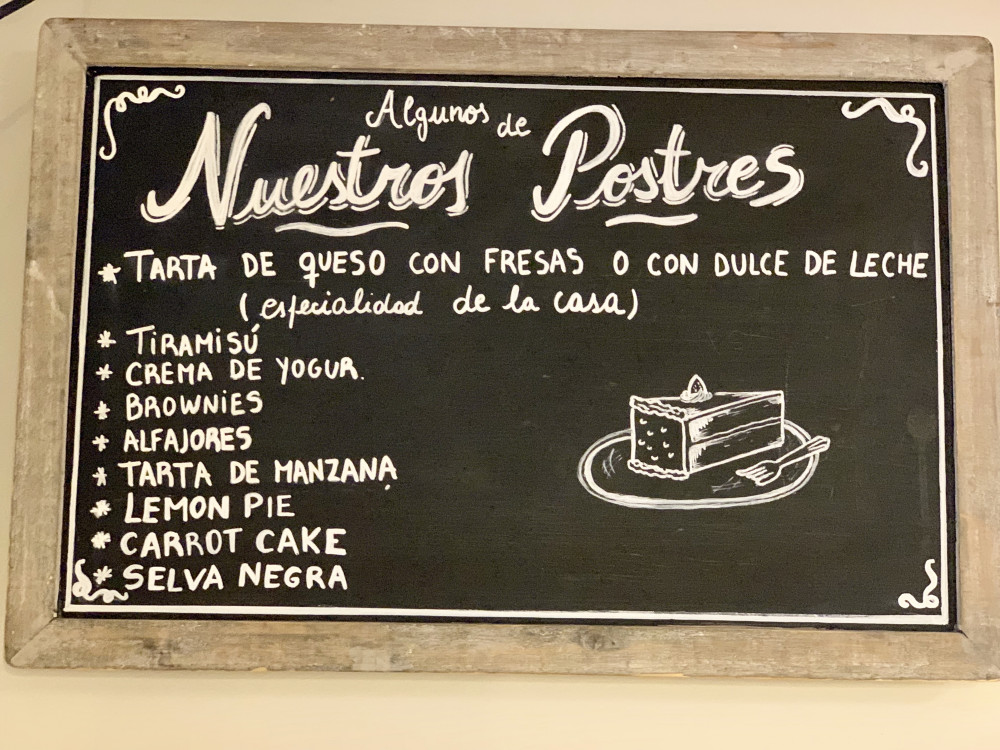 Algunos de
Nuestros Postres
* TARTA DE QUESO CON FRESAS O CON DULCE DE LECHE
(especialidad de la casa)
* TIRAMISÚ
* CREMA DE YOGUR.
* BROWNIES
* ALFAJORES
* TARTA DE MANZANA
* LEMON PIE
* CARROT CAKE
* SELVA NEGRA